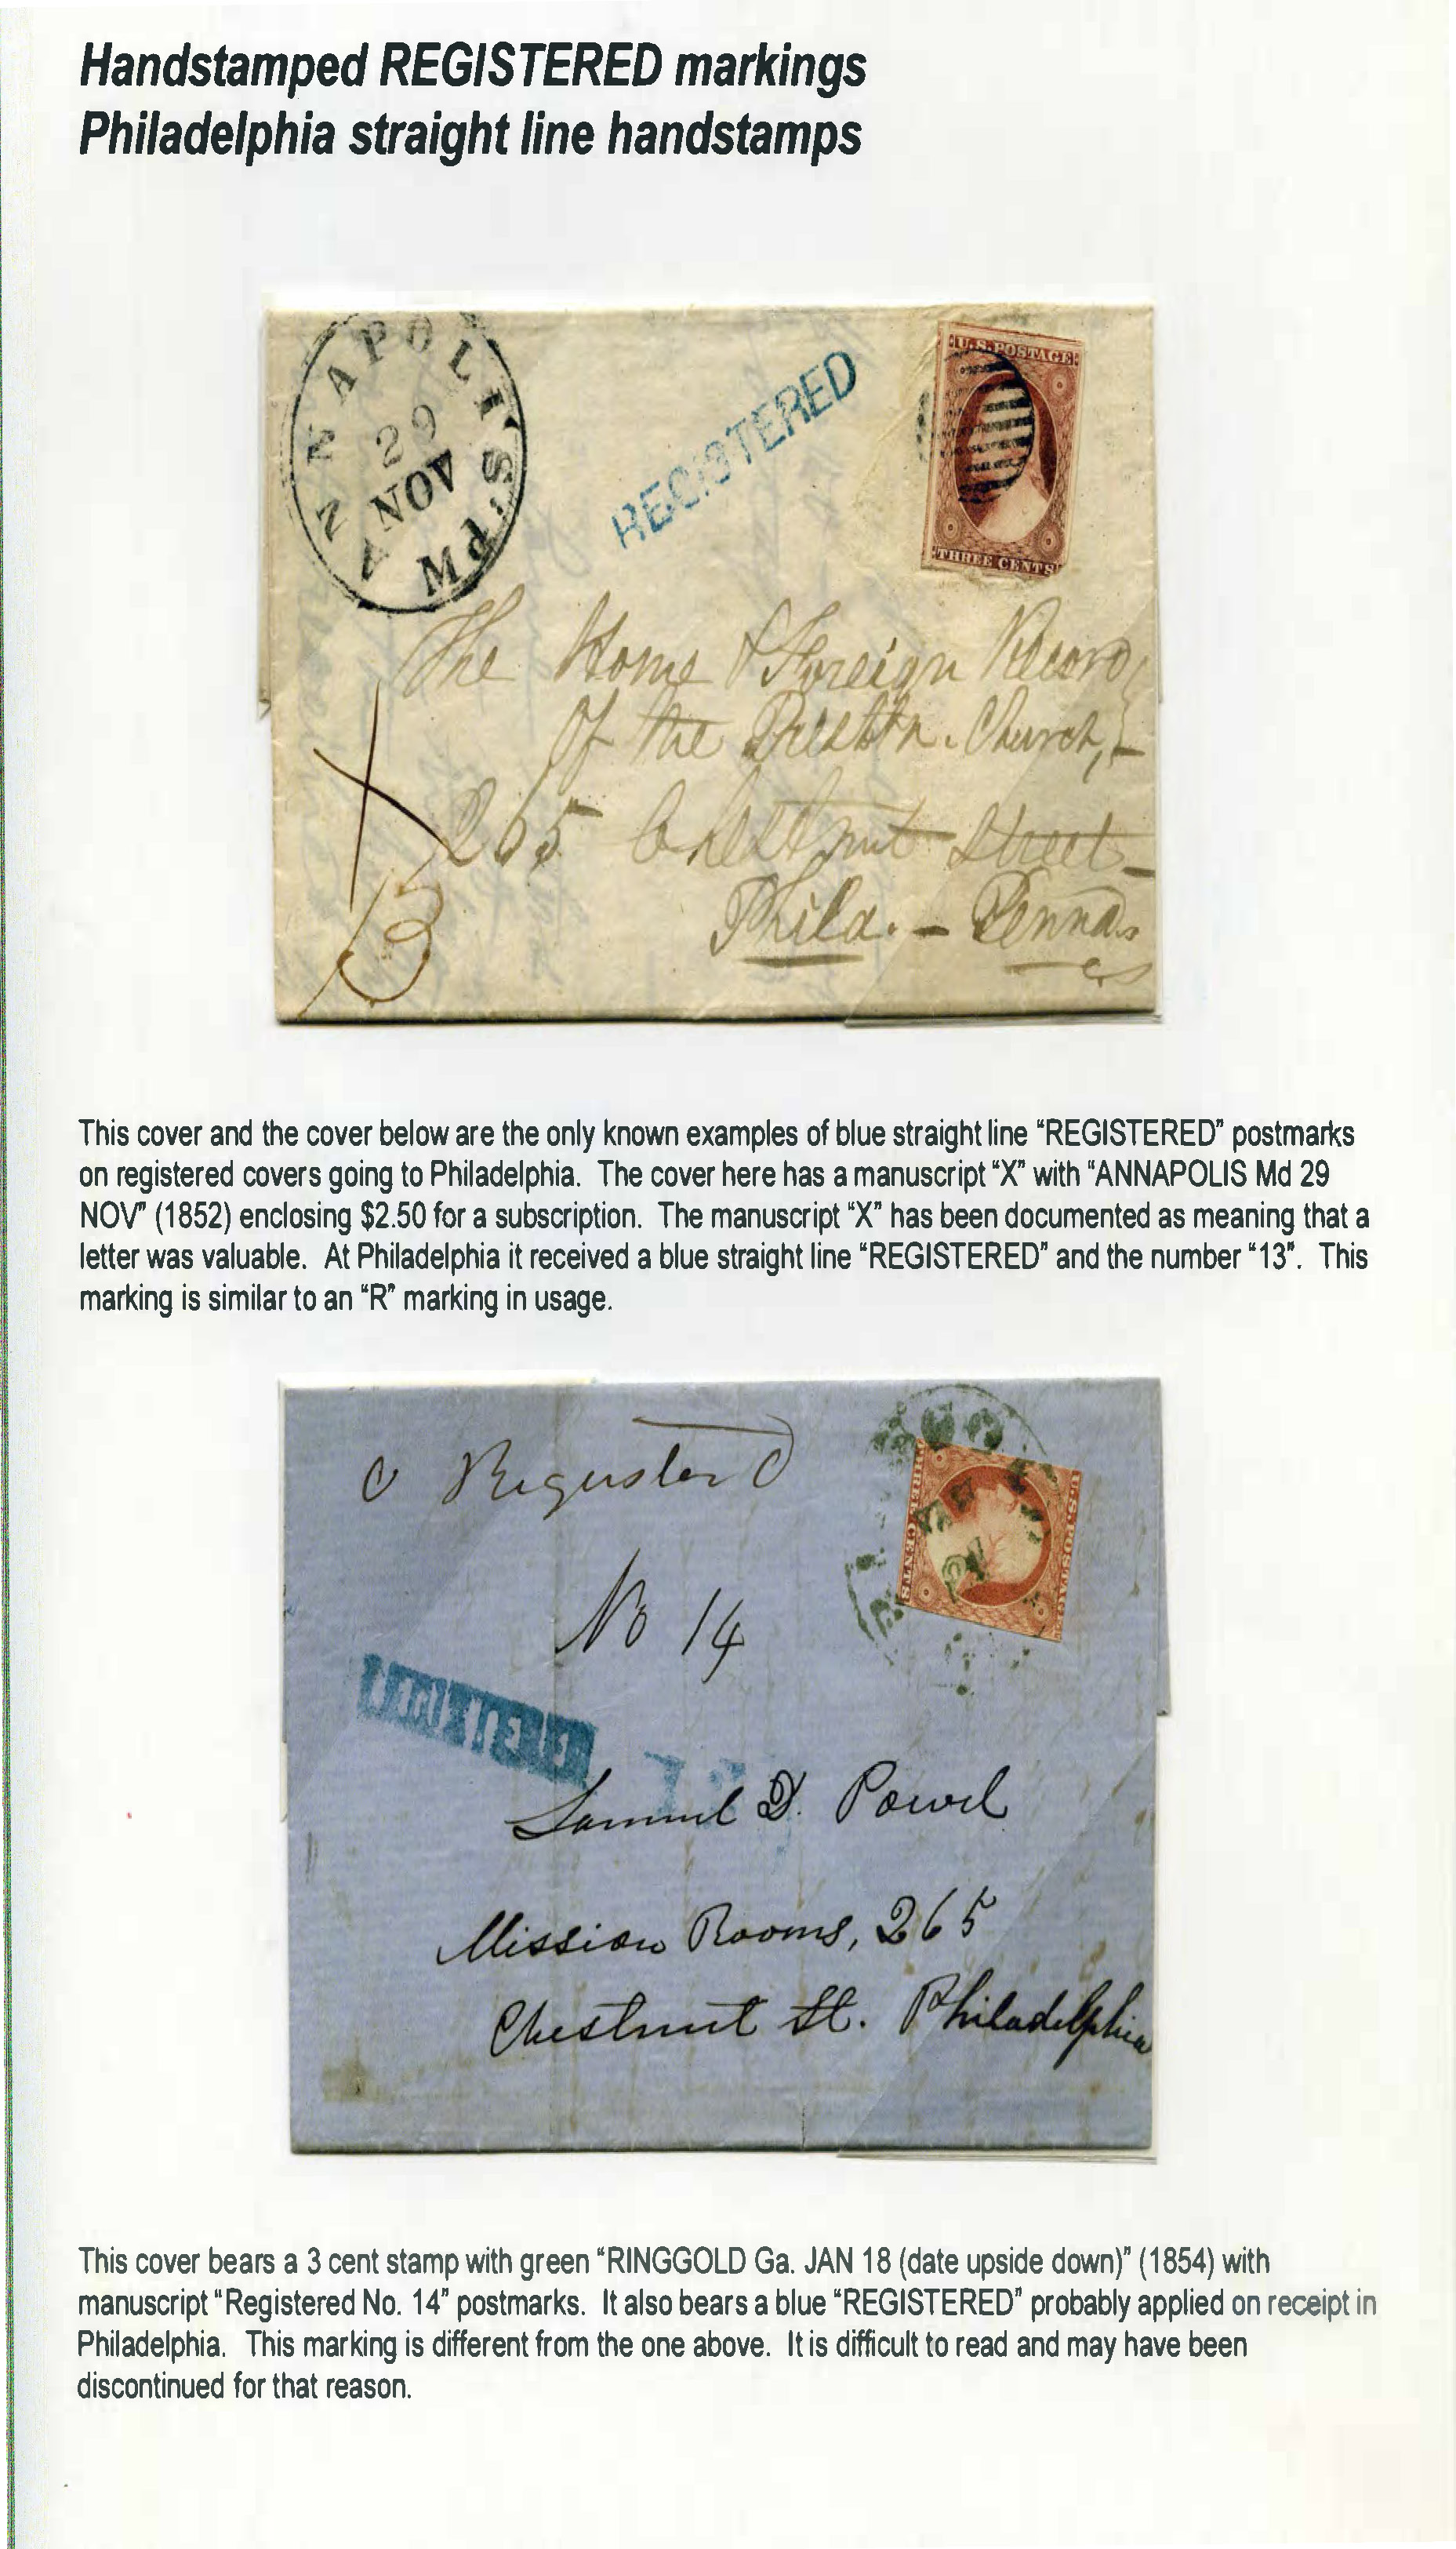 Handstamped REGISTERED markings
Philadelphia straight line handstamps
ANNAPOLIS, Md.
29
NOV
REGISTERED
U.S. POSTAGE
THREE CENTS
The Home & Foreign Record
Of the Presbtn. Church,
265 Chestnut Street
Phila. - Penna.
X
13
This cover and the cover below are the only known examples of blue straight line “REGISTERED” postmarks
on registered covers going to Philadelphia. The cover here has a manuscript “X” with “ANNAPOLIS Md 29
NOV” (1852) enclosing $2.50 for a subscription. The manuscript “X” has been documented as meaning that a
letter was valuable. At Philadelphia it received a blue straight line “REGISTERED” and the number “13”. This
marking is similar to an “R” marking in usage.
Registerd
No 14
U.S. POSTAGE
THREE CENTS
JAN
18
Samuel D. Powel
Mission Rooms, 265
Chestnut St. Philadelphia
This cover bears a 3 cent stamp with green “RINGGOLD Ga. JAN 18 (date upside down)” (1854) with
manuscript “Registered No. 14” postmarks. It also bears a blue “REGISTERED” probably applied on receipt in
Philadelphia. This marking is different from the one above. It is difficult to read and may have been
discontinued for that reason.